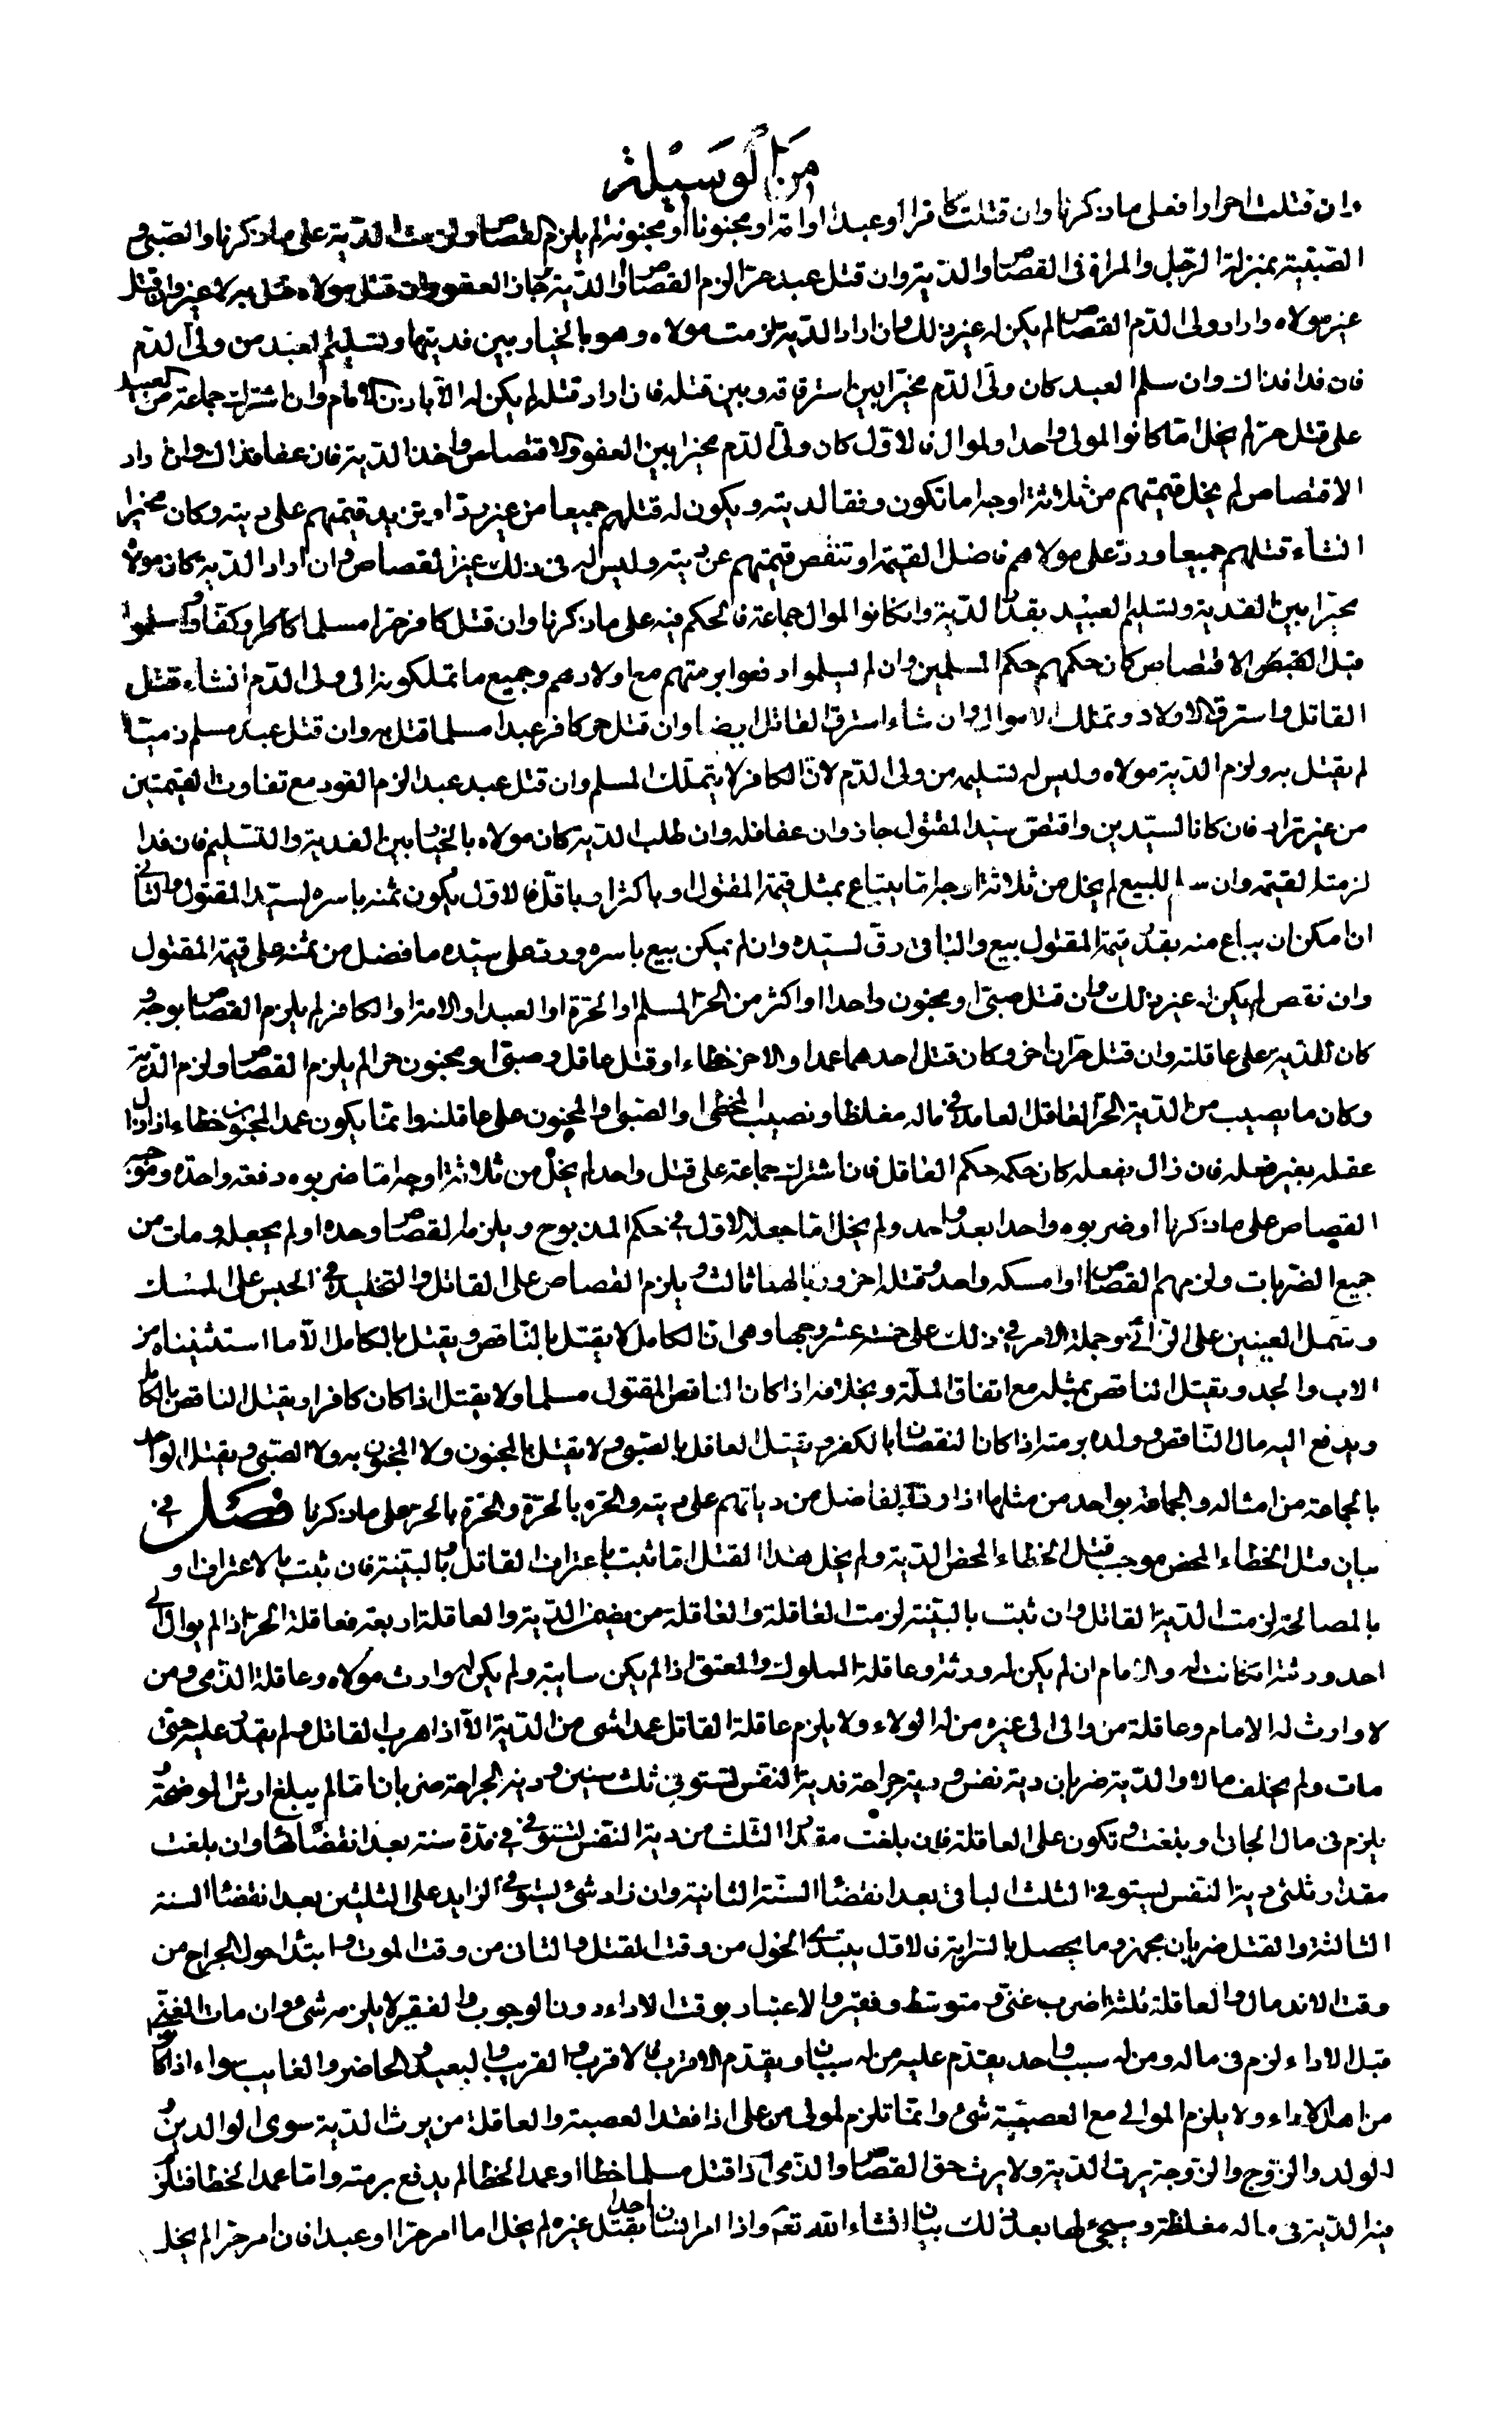 من الوسيلة
وان قتلت احرارا فعلى ما ذكرنا وان قتلت كافرا أو عبدا او امة او مجنونا او مجنونة لم يلزم القصاص ولزمت الدية على ما ذكرنا والصبي و
الصبية بمنزلة الرجل والمراة فى القصاص والدية وان قتل عبد حرا لزم القصاص أو الدية وجاز العفو وان قتل مولاه قتل به لا غير وان قتل
غير مولاه واراد ولى الدم القصاص لم يكن له غير ذلك وان اراد الدية لزمت مولاه وهو بالخيار بين فديتها وتسليم العبد من ولى الدم
فان فدا فذاك وان سلم العبد كان ولى الدم مخيرا بين استرقاقه وبين قتله فان اراد قتله لم يكن له الا باذن الامام وان اشترك جماعة من العبيد
على قتل حر لم يخل اما كانوا لمولى واحد او لموال فالاول كان ولى الدم مخيرا بين العفو والاقتصاص واخذ الدية فان عفا فذاك وان اراد
الاقتصاص لم يخل قيمتهم من ثلاثة اوجه اما تكون وفقا لديته ويكون له قتلهم جميعا من غير رد او يزيد قيمتهم على ديته وكان مخيرا
انشاء قتلهم جميعا ورد على مولاهم فاضل القيمة او تنقص قيمتهم عن ديته وليس له فى ذلك غير القصاص وان اراد الدية كان مولاه
مخيرا بين الفدية وتسليم العبيد بقدر الدية وان كانوا لموال جماعة فالحكم فيه على ما ذكرنا وان قتل كافر حرا مسلما كاملا وكفار واسلموا
قبل الاقتصاص كان حكمهم حكم المسلمين وان لم يسلموا دفعوا برمتهم مع اولادهم وجميع ما تملكونه الى ولى الدم انشاء قتل
القاتل واسترق الاولاد وتملك الاموال وان شاء استرق القاتل ايضا وان قتل حر كافر عبدا مسلما قتل به وان قتل عبد مسلم ذميا
لم يقتل به ولزم الدية مولاه وليس له تسليمه من ولى الدم لان الكافر لا يتملك المسلم وان قتل عبد عبدا لزم القود مع تفاوت القيمتين
من غير تراد فان كانا لسيدين واقتص سيد المقتول جاز وان عفا فله وان طلب الدية كان مولاه بالخيار بين الفدية والتسليم فان فدا
لزمته القيمة وان سلم للبيع لم يخل من ثلاثة اوجه اما يبتاع بمثل قيمة المقتول او باكثر او باقل فالاول يكون ثمنه باسره لسيد المقتول والثانى
ان امكن ان يباع منه بقدر قيمة المقتول بيع والباقى رق لسيده وان لم يمكن بيع باسره ورد على سيده ما فضل من ثمنه على قيمة المقتول
وان نقص لم يكن له غير ذلك وان قتل صبى او مجنون واحدا او اكثر من الحر المسلم او الحرة او العبد او الامة او الكافر لم يلزم القصاص بوجه و
كان الدية على عاقلته وان قتل حران اخر وكان قتل احدهما عمدا والاخر خطاء او قتل عاقل وصبى او مجنون حرا لم يلزم القصاص ولزم الدية
وكان ما يصيب من الدية الحر العاقل العامد في ماله مغلظا ونصيب المخطى والصبى والمجنون على عاقلته وانما يكون عمد المجنون خطاء اذا زال
عقله بغير فعله فان زال بفعله كان حكمه حكم العاقل فان اشترك جماعة على قتل واحد لم يخل من ثلاثة اوجه اما ضربوه دفعة واحدة وموجبه
القصاص على ما ذكرنا او ضربوه واحدا بعد واحد ولم يخل اما جعله الاول في حكم المذبوح ويلزمه القصاص وحده او لم يجعله ومات من
جميع الضربات ولزمهم القصاص او امسكه واحد وقتله اخر وربالهما ثالث ويلزم القصاص على القاتل والتخليد في الحبس على الممسك
وسمل العينين على الرائي وجملة الامر في ذلك على خمسة عشر وجها وهى ان الكامل لا يقتل بالناقص ويقتل بالكامل الا ما استثنيناه من
الاب والجد ويقتل الناقص بمثله مع اتفاق الملة وبخلافه اذا كان الناقص المقتول مسلما ولا يقتل اذا كان كافرا ويقتل الناقص بالكامل
ويدفع اليه مال الناقص وولده برمته اذا كان النقصان بالكفر ويقتل العاقل بالصبى ولا يقتل بالمجنون ولا المجنون به ولا الصبى ويقتل الواحد
بالجماعة من امثاله والجماعة بواحد من مثلها اذا رد الفاضل من دياتهم على ديته والحرة بالحرة والحرة بالحر على ما ذكرنا فصل في
بيان قتل الخطاء المحض موجب قتل الخطاء المحض الدية ولم يخل هذا القتل اما ثبت باعتراف القاتل او بالبينة فان ثبت بالاعتراف او
بالمصالحة لزمت الدية القاتل وان ثبت بالبينة لزمت العاقلة والعاقلة من يضمن الدية والعاقلة اربعة فعاقلة الحر اذا لم يوال
احد ورثته ان كانت له والامام ان لم يكن له ورثة وعاقلة المملوك والمعتق اذا لم يكن سايبة ولم يكن له وارث مولاه وعاقلة الذمى ومن
لا وارث له الامام وعاقلة من والى الى غيره من له الولاء ولا يلزم عاقلة القاتل عمدا شى من الدية الا اذا هرب القاتل ولم يقدر عليه حتى
مات ولم يخلف مالا والدية ضربان دية نفس ودية جراحة فدية النفس تستوفي ثلث سنين ودية الجراحة ضربان اما لم يبلغ ارش الموضحة و
يلزم فى مال الجانى او بلغت وتكون على العاقلة فان بلغت مقدار الثلث من دية النفس تستوفى في مدة سنة بعد انقضائها وان بلغت
مقدار ثلثى دية النفس يستوفى الثلث الباقى بعد انقضاء السنة الثانية وان زاد شئ يستوفى الزايد على الثلثين بعد انقضاء السنة
الثالثة والقتل ضربان مجهز وما يحصل بالسراية فالاول يبتدئ الحول من وقت القتل والثانى من وقت الموت وابتداء حول الجراح من
وقت الاندمال والعاقلة ثلثة اضرب غنى ومتوسط وفقير والاعتبار بوقت الاداء دون الوجوب والفقير لا يلزمه شئ وان مات الغنى
قبل الاداء لزم فى ماله ومن له سبب واحد يقدم عليه من له سببان ويقدم الاقرب فالاقرب والقريب والبعيد والحاضر والغايب سواء اذا كانوا
من اهل الاداء ولا يلزم الموالى مع العصبة شئ وانما تلزم المولى من على اذا فقد العصبة والعاقلة من يرث الدية سوى الوالدين و
الولد والزوج والزوجة يرث الدية ولا يرث حق القصاص والذمى اذا قتل مسلما خطا او عمد الخطا لم يدفع برمته واما عمد الخطا فتلزم
فيه الدية فى ماله مغلظة وسيجئ لها بعد ذلك بيان انشاء الله تعم واذا امر انسان احدا بقتل غيره لم يخل اما امر حرا او عبدا فان امر حرا لم يخل